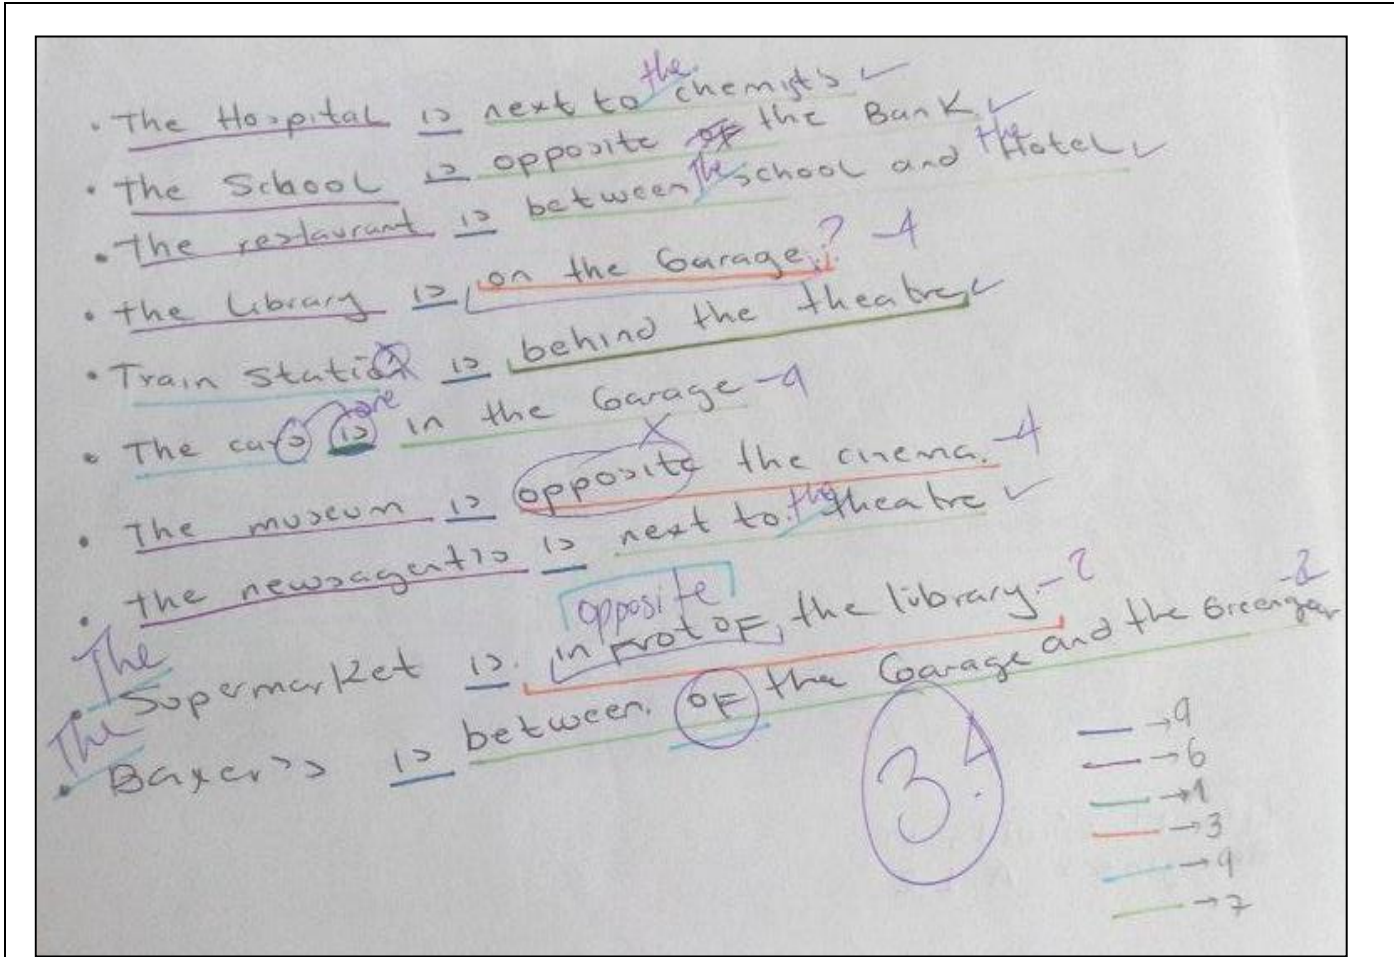 the.
• The Hospital is next to chemist's
• The School is opposite of the Bank.
the the
• The restaurant is between school and Hotel
• the Library is on the Garage. ? -4
• Train Station is behind the theatre
are
• The cars is in the Garage -4
• The museum is opposite the cinema. -4
the
• the newsagent's is next to theatre
opposite
The
• Supermarket is in frot of, the library. -2
The
• Baker's is between. of the Garage and the Greengar -2
3.4
→9
→6
→1
→3
→9
→7